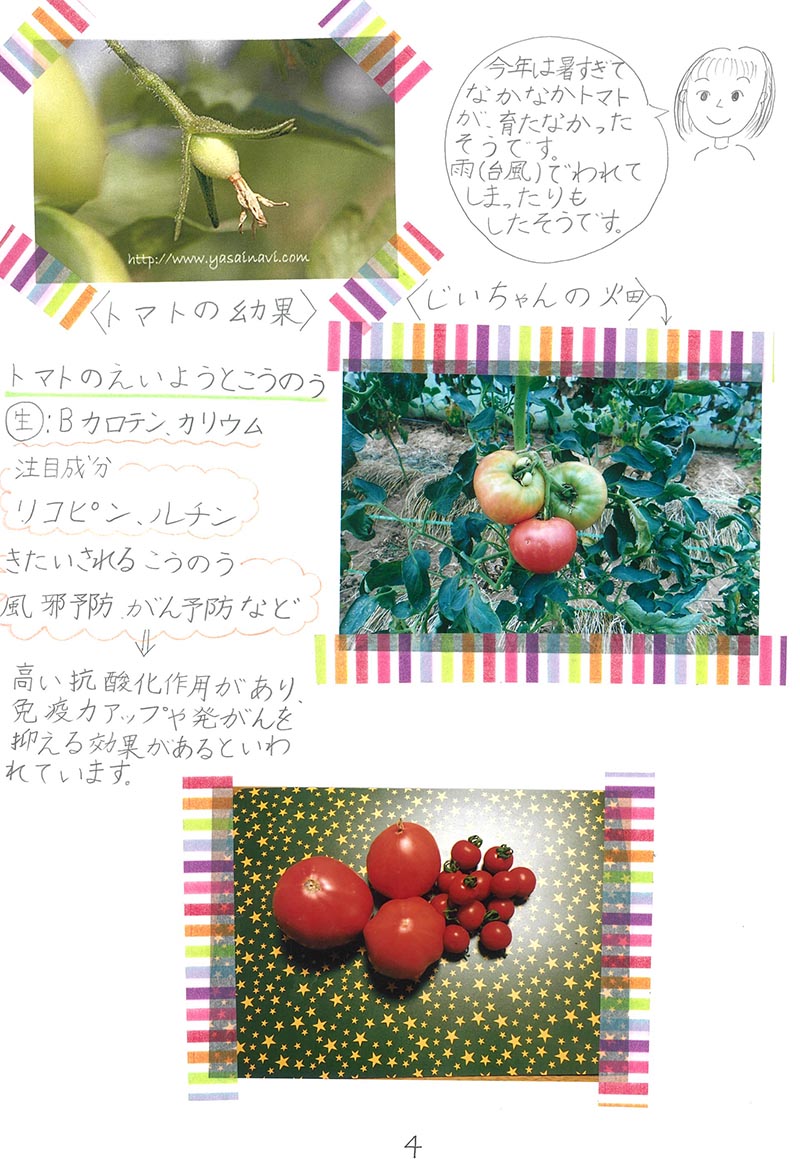 今年は暑すぎて
なかなかトマト
が、育たなかった
そうです。
雨(台風)でわれて
しまったりも
したそうです。
http://www.yasainavi.com
〈トマトの幼果〉
〈じいちゃんの畑〉
トマトのえいようとこうのう
生:Bカロテン、カリウム
注目成分
リコピン、ルチン
きたいされるこうのう
風邪予防、がん予防など
⇓
高い抗酸化作用があり、
免疫力アップや発がんを
抑える効果があるといわ
れています。
4